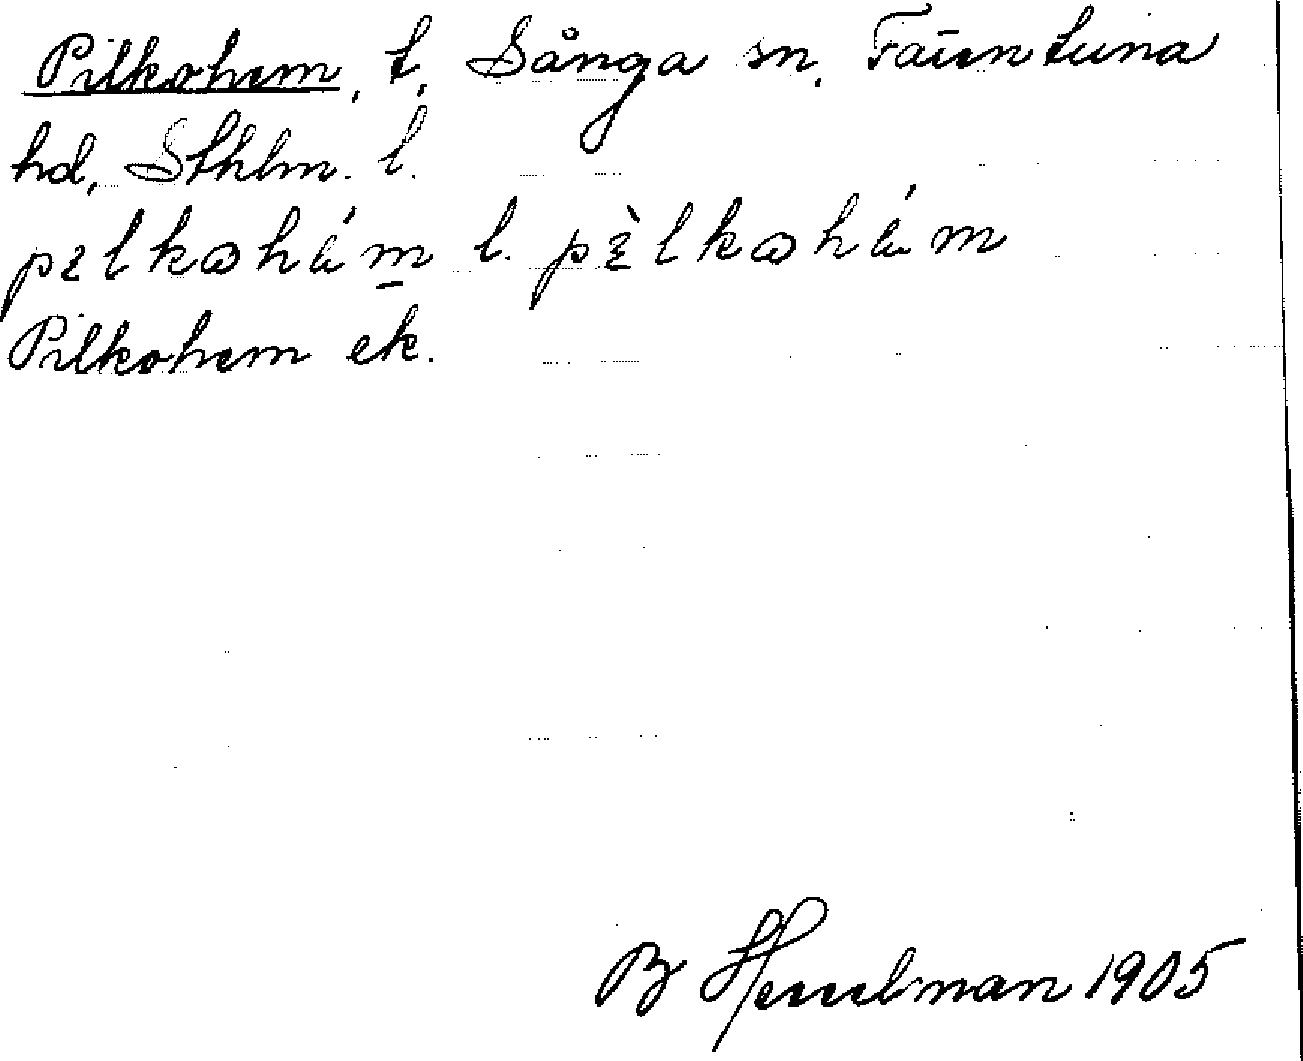 Pilkohem, t, Sånga sn, Færentuna
hd, Sthlm. l.
pılkωhä́m l. pı̀lkωhä́m
Pilkohem ek.
B Hesselman 1905